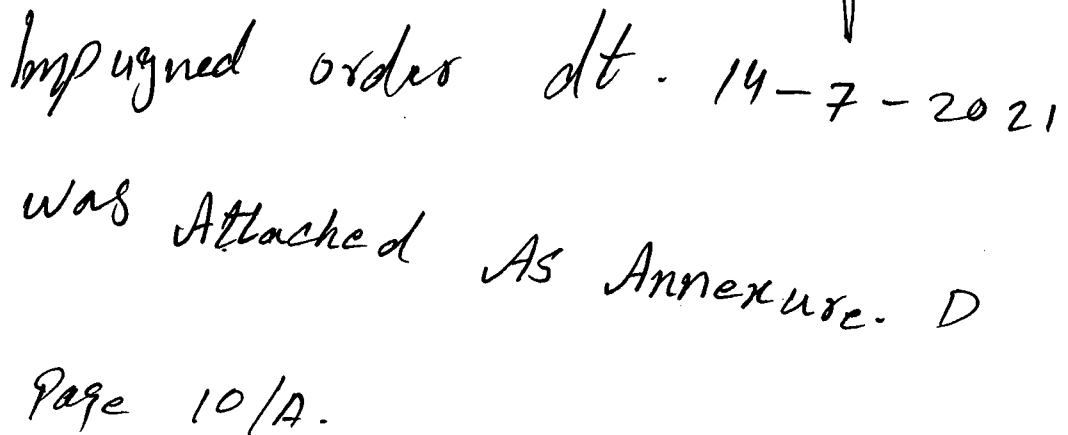 Impugned order dt. 14-7-2021
was Attached As Annexure. D
Page 10/A.